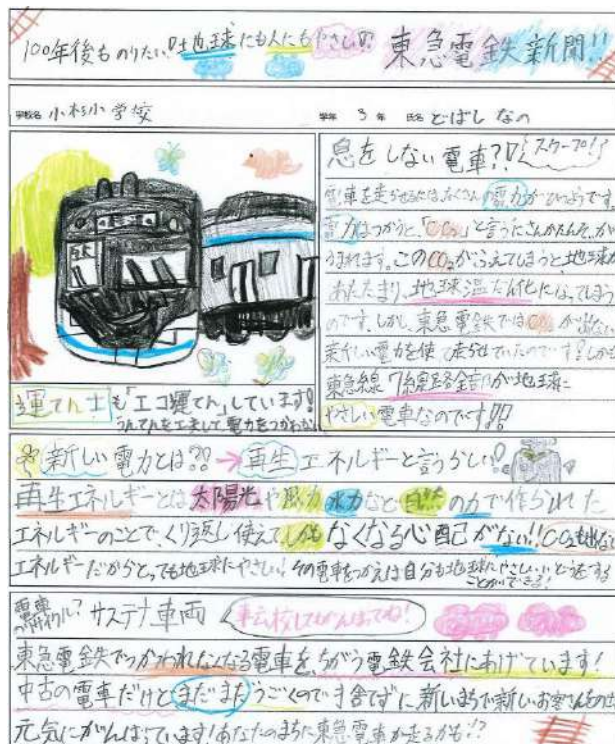 100年後ものりたい!地球にも人にもやさしい 東急電鉄新聞!!
学校名 小杉小学校 学年 3年 氏名 どばし なの
息をしない電車??スクープ!
電車を走らせるには、たくさんの電力がひつようです。
電力はつかうと、「CO₂」と言うにさんかたんそが
うまれます。このCO₂がふえてしまうと、地球が
あたたまり、地球温だん化になってしまう
のです。しかし、東急電鉄ではCO₂が出ない
新しい電力を使って走らせていたのです!しかも
東急線7線路全部が地球に
やさしい電車なのです!!
運てん士も「エコ運てん」しています!
うんてんを工夫して電力をつかわない
新しい電力とは??→再生エネルギーと言うらしい!
再生エネルギーとは太陽光や風力水力など自然の力で作られた
エネルギーのことで、くり返し使えてしかもなくなる心配がない!!CO₂も出ない
エネルギーだからとっても地球にやさしい!その電車をつかえば自分も地球にやさしいい動をする
ことができる!
電車のリサイクル?サステナ車両 転校してもがんばってね!
東急電鉄でつかわれなくなる電車を、ちがう電鉄会社にあげています!
中古の電車だけどまだまだうごくので捨てずに新しいまちで新しいお客さんをのせ
元気にがんばっています!あなたのまちに東急電車が走るかも!?